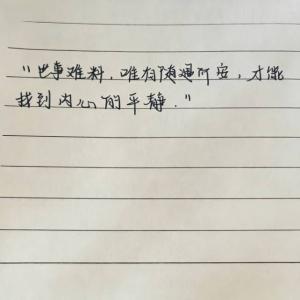 "世事难料，唯有随遇而安，才能
找到内心的平静."